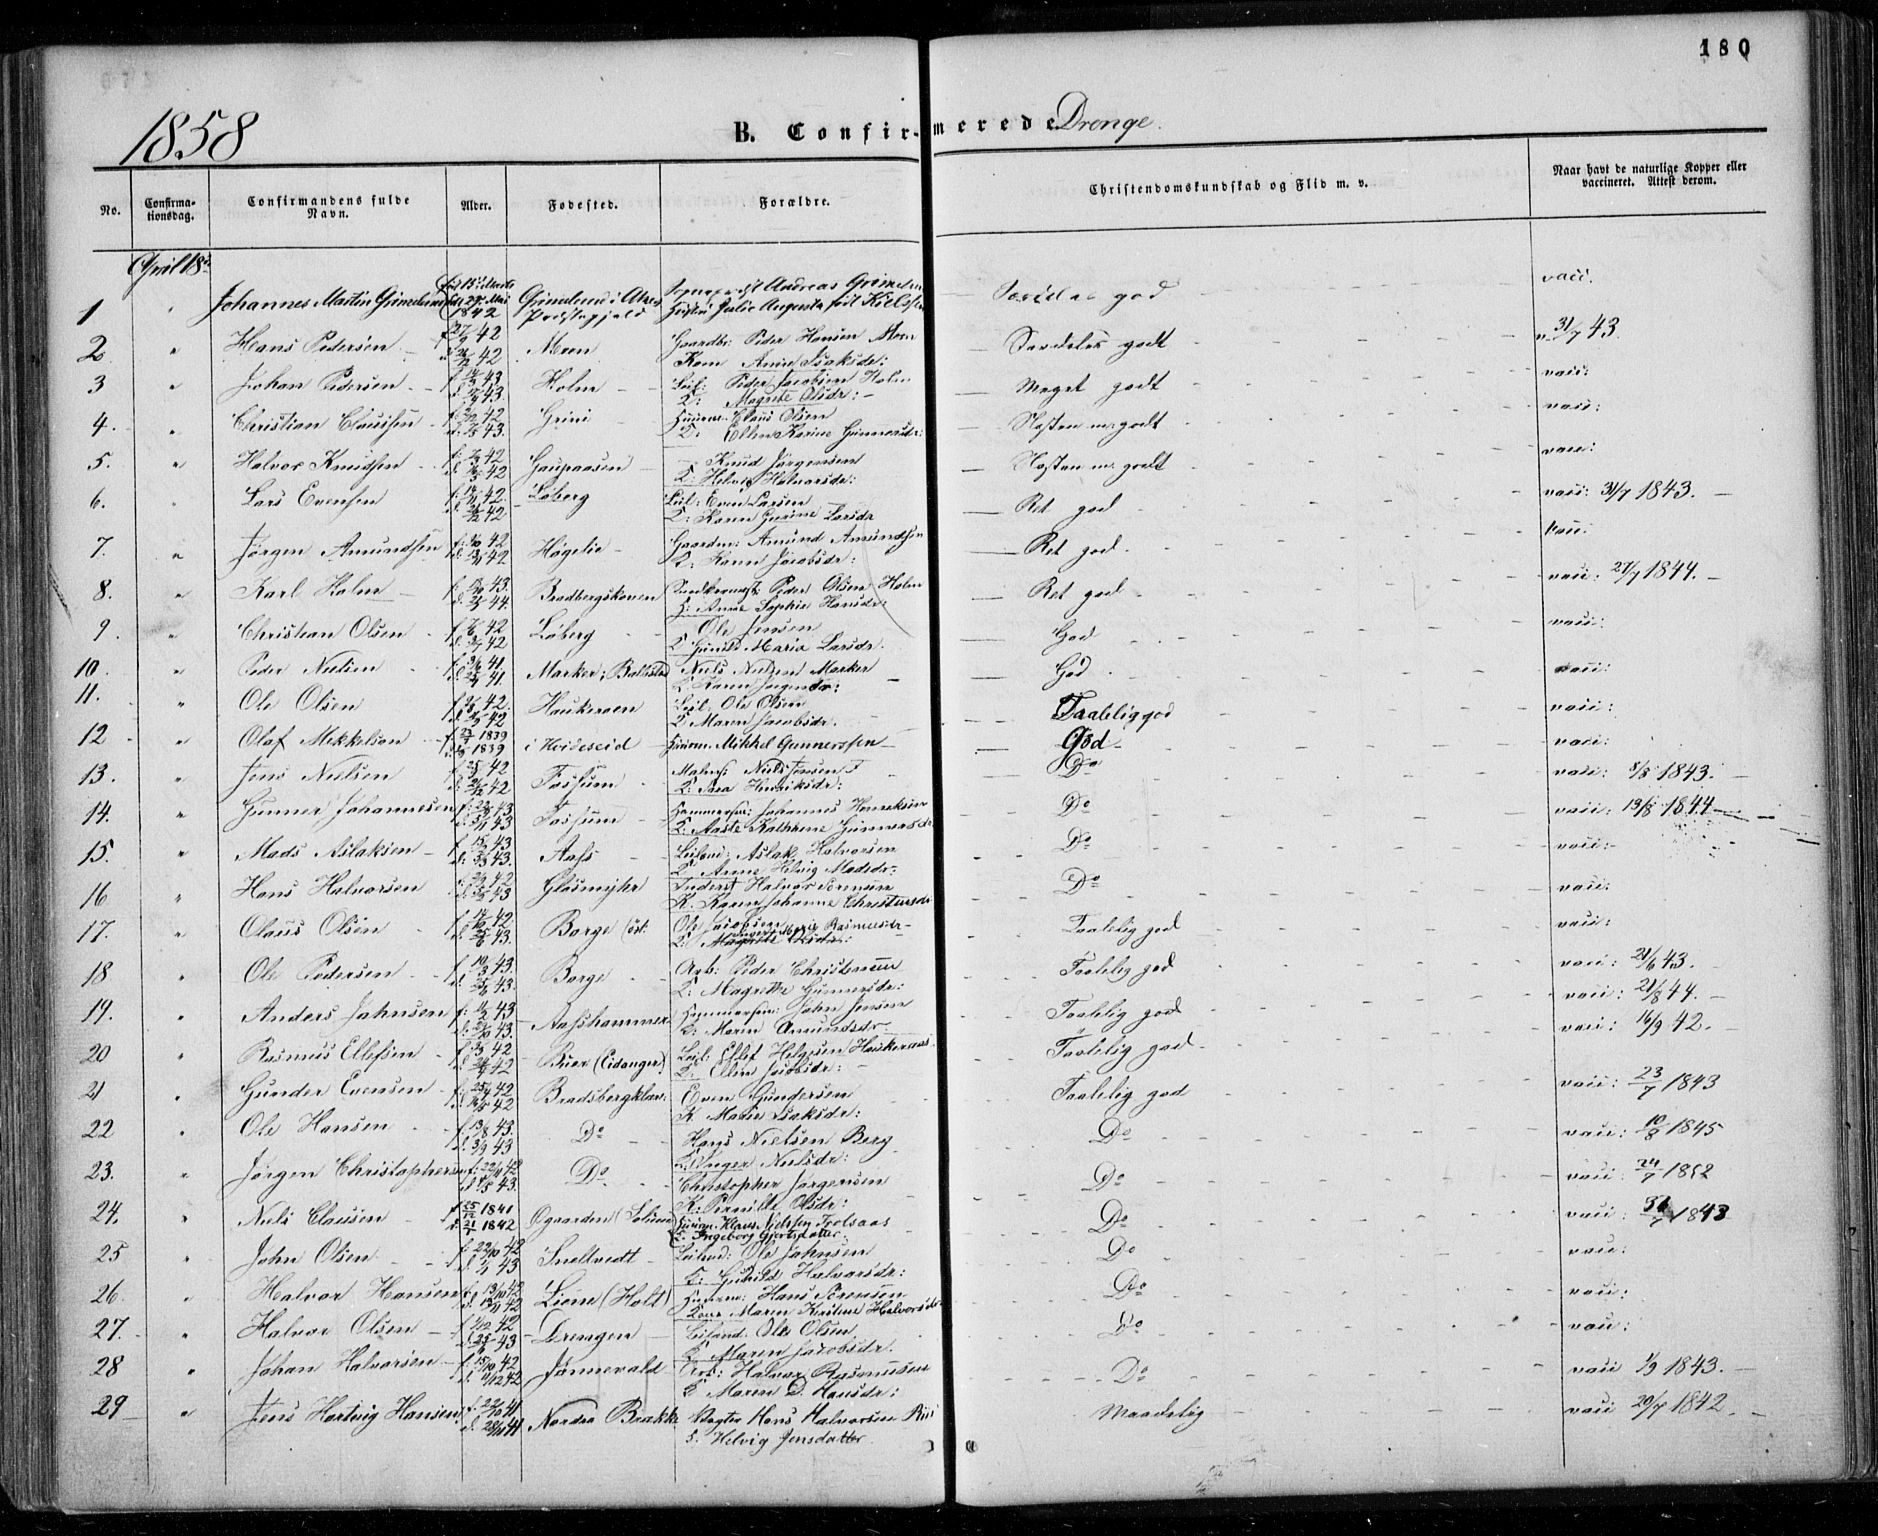 180
1858
B. Confirmerede Drenge.
No. Confirma-tionsdag. Confirmandens fulde Navn. Alder. Fødested. Forældre. Christendomskundskab og Flid m. v. Naar havt de naturlige Kopper eller vaccineret. Attest derom.
April 18
1 " Johannes Martin 15 Marts 29 Mai 1842 Grimelund i Akers Præstegjeld Sogneprest Andreas Hustru Julie Augusta god vacc.
2 " Hans Pedersen 42 42 Moen Gaardbr: Peder Hansen Moen Kone Anne Isaksdr: Særdeles godt v. 31/7 43.
3 " Johan Pedersen 43 43. Holm Leil: Peder Jacobsen Holm K: Magrete Olsdr: Meget godt vacc:
4. " Christian Clausen 42 43. Grini Huusm: Claus Olsen K: Ellen Karine Gunnersdr: Næsten m. godt vacc:
5. " Halvor Knudsen 42 42 Gaupaasen Knud Jørgensen K: Helvig Halvorsdr: Næsten m. godt vacc:
6. " Lars Evensen 42. 42. Løberg Leil: Even Larsen K: Karen Gurine Larsdr Ret god vacc: 31/7 1843.
7. " Jørgen Amundsen 42 42 Høgelie Gaardm: Amund Amundsen K: Karen Jacobsdr: Ret god. vacc:
8. " Karl Holm 43. 44. Peder Olsen Holm H: Anne Sophie Hansdr: Ret god vacc: 27/7 1844.
9. " Christian Olsen 42 42 Løberg Ole Jensen K: Gunild Maria Larsdr. God vacc:
10. " Peder Nielsen 41. 41. Marker; Niels Nielsen Marker K: Karen God vacc:
11. " Ole Olsen 42. 42 Haukeraen Leil: Ole Olsen K: Maren Jacobsdr. Taalelig god vacc:
12 " Olaf Mikkelson 1839 1839 i Hvideseid Huusm. Mikkel Gunnerssen God vacc:
13. " Jens Nielsen 42 42 Fossum Niels Jensen F K: Thea Henriksdr: Do vacc: 8/8 1843.
14. " Gunner Johannesen 43 43 Fossum Hammersm: Johannes Henriksen K: Aaste Kathrine Gunnersdr. Do vacc: 13/8 1844
15. " Mads Aslaksen 43 43. Aafs Leilend: Aslak Halvorsen K Anne Helvig Madsdr Do vacc:
16 " Hans Halvorsen 42 43 Glasmyhr Inderst Halvor Sørensen K. Karen Johanne Christensdr Do vacc:
17. " Olaus Olsen 42 43. Borge (øst: Ole Jacobsen Maria Rasmusdr K: Magrete Olsdr: Taalelig god vacc:
18 " Ole Pedersen 10/3 43. 43. Borge Arb: Peder Christensen K: Magrethe Gunnersdr: Taalelig god vacc: 21/6 43.
19. " Anders Jahnsen 43 43. Aafshammer Hammersm: Jahn Jensen K: Maren Amundsdr Taalelig god vacc: 21/8 44.
20 " Rasmus Ellefsen 42 42 Buer (Eidanger) Leil: Ellef Helgesen Haukeraas K. Ellen Jacobsdr: Taalelig god vacc: 16/9 42.
21 " Gunder Evensen 42 42 Bradsbergkleven: Even Gundersen K. Marie Isaksdr: Taalelig god vacc: 23/7 1843
22 " Ole Hansen 13/8 43. 3/9 43 Do Hans Nielsen Berg K: Inger Nielsdr: Do vacc: 10/8 1845
23. " Jørgen Christophersen 22/11 42 43. Do Christopher Jørgensen K: Pernille Olsdr: Do vacc: 24/7 1852
24. " Niels Clausen 25/12 1841 21/1 1842 Ogaarden (Solum) Huusm. Klaus Nielsen Trolsaas K. Ingeborg Gjertsdatter. Do vacc: 31/7 1843
25 " John Olsen 22/10 42 43 Sneltvedt Leilend: Ole Jahnsen K: Gunild Halvorsdr: Do vacc:
26. " Halvor Hansen 13/10 42 13/11 42 Liene (Holt) Huusm: Hans Sørensen Kone Maren Kirstine Halvorsdr Do vacc:
27. " Halvor Olsen 42 43 Leilend: Ole Olsen K Maren Jacobsdr. Do vacc:
28 " Johan Halvorsen 15/10 42 42 Jønnevald Arb: Halvor Rasmussen K Maren D. Hansdr: Do vacc 1/9 1843.
29 " Jens Hartvig Hansen 22/10 41 41 Nordra Brække Vegter Hans Halvorsen Riis K. Helvig Jensdatter. Maadelig vacc 20/7 1842.